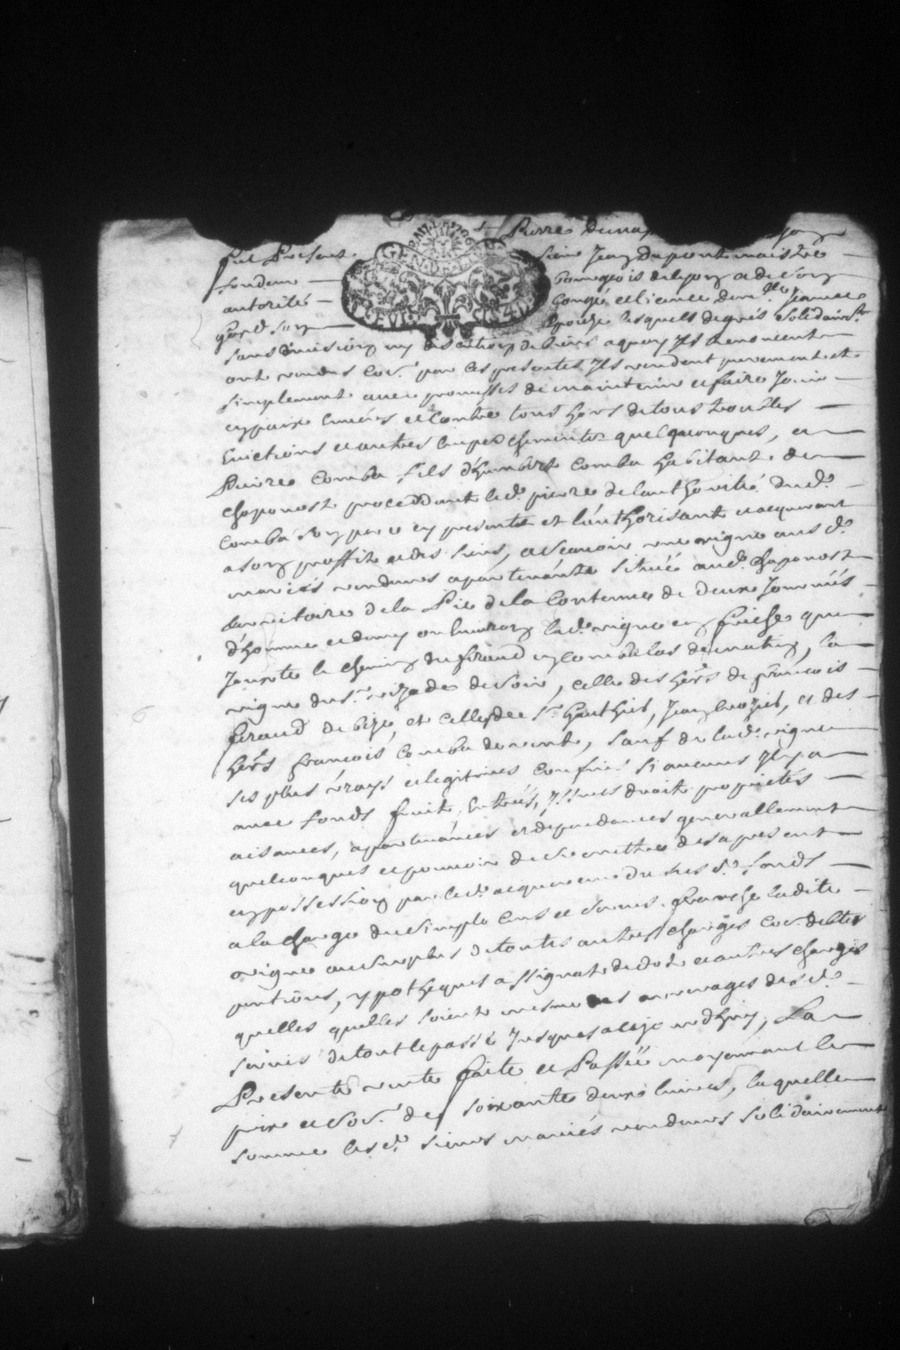 Pierre
fut Present sieur Jean dupont maistre
fondeur bourgeois de Lyon a de son
autorité congé et licence dem.lle Jeanne
son épouse lesquels de grés solidairem.t
sans division ny discution de biens a quoy Ils renoncent
ont vendus comme par ces presentes Ils vendent purement et
simplement avec promesses de maintenir et faire Jouir
en paix envers et contre tous hors de tous troubles
Evictions et autres empechements quelquonques, a
Pierre Comba fils d'humbert Comba habitant de
chaponost procedant led. pierre de l'authorité dud.
Comba son pere cy present et l'authorisant acquerant
a son proffit et des siens, a scavoir une vigne aus d.
mariés vendeurs apartenante située aud. chaponost
territoire de la de la Contenue de deux Journés
d'homme et demy ou environ lad. vigne en friche que
Jouxte le chemin du de matin, la
vigne du s.r de soir, celle des hers de francois
feraud de bize, et celles de s.r Gauthier, Jean, et des
hers francois Comba de vent, sauf de lad. vigne
ses plus vrays et legitimes confins si aucuns Il y a
avec fonds fruit, Entrés, Issues droits proprietés
aisances, apartenances et dependances generallement
quelconques et pouvoir de se mettre des a present
en possession par led. acquereur du susd. fonds
a la charge du simple Cens et servis. franche ladite
vigne au surplus de toutes autres charges
pentions, ypotheques assignats de dot et autres charges
quelles quelles soient mesme des arrerages des d.
servis de tout le passé Jusques a ce jourdhuy, La
Presente vente faite et Passée moyennant le
prix et de soixante deux livres, laquelle
somme lesd. sieurs mariés vendeurs solidairement